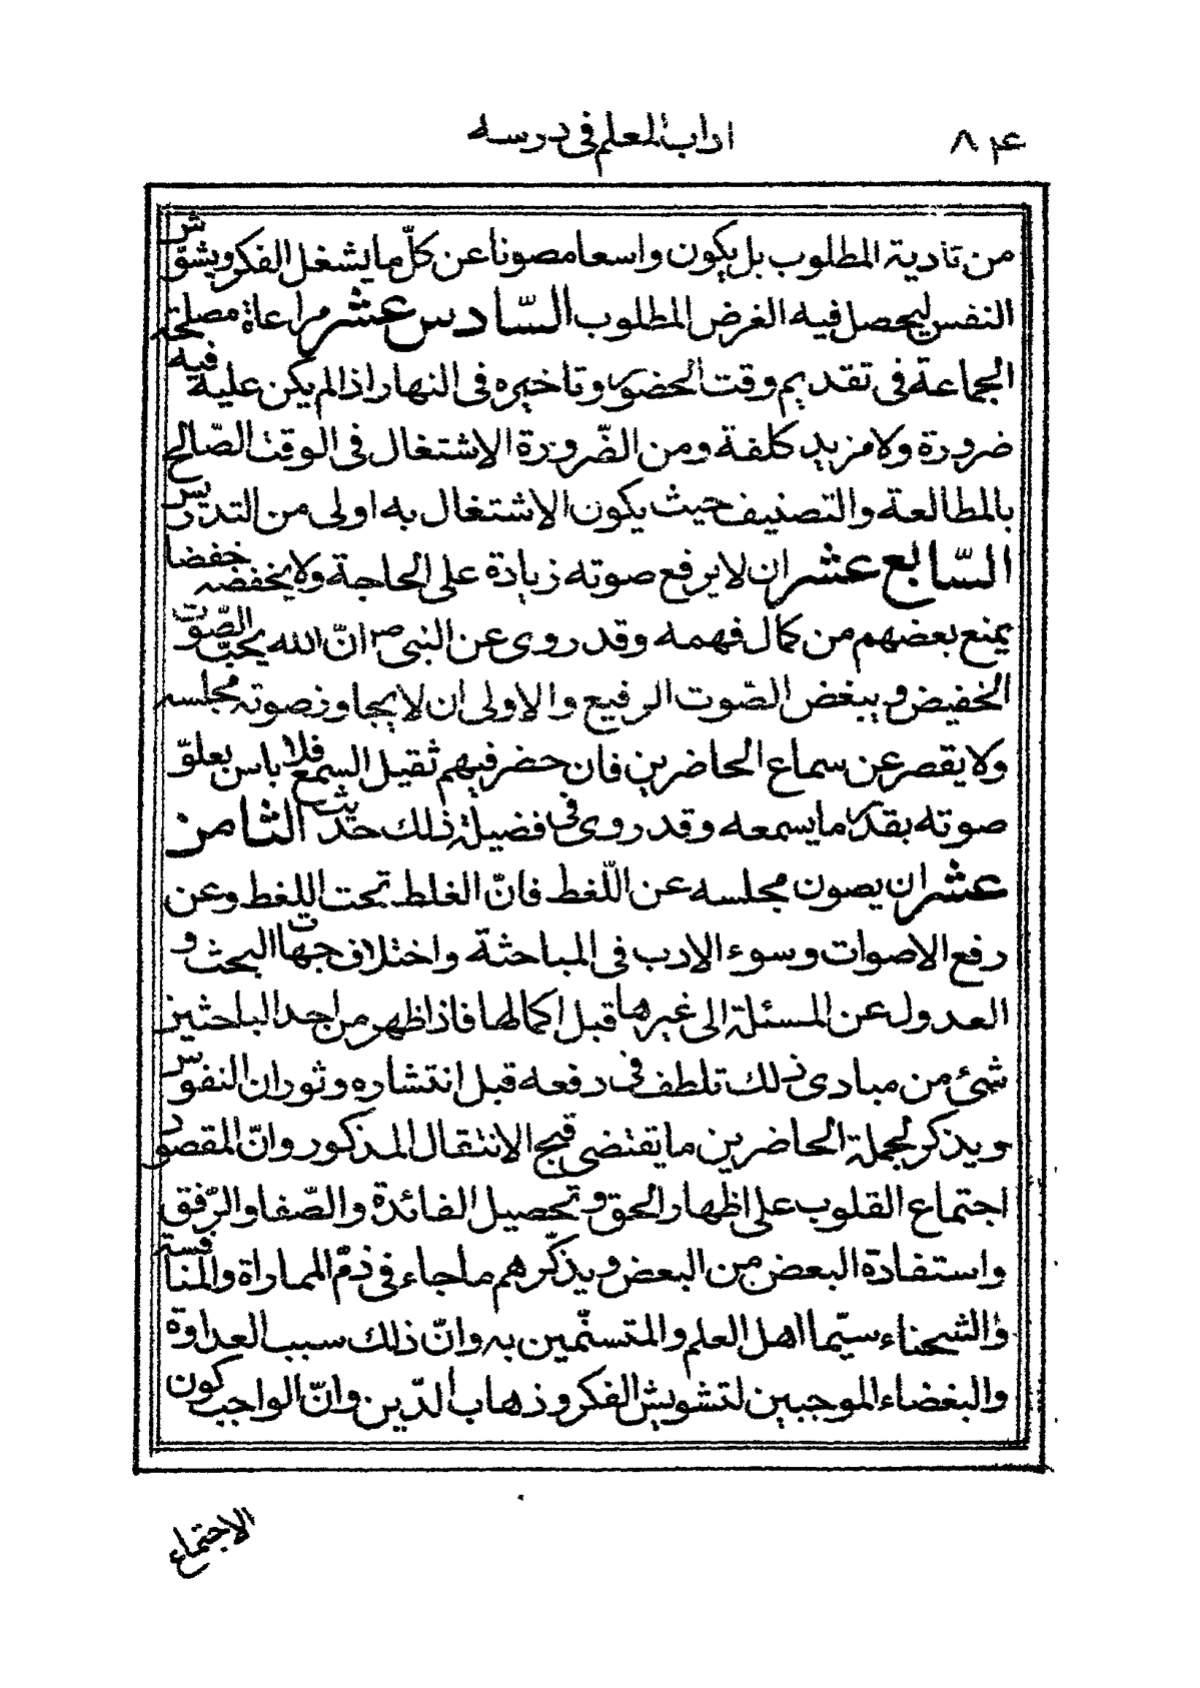 ٨۴ اداب المعلم فى درسه
من تادية المطلوب بل يكون واسعا مصونا عن كلّ ما يشغل الفكر ويشوّش
النفس ليحصل فيه الغرض المطلوب السّادس عشر مراعاة مصلحة
الجماعة فى تقديم وقت الحضور وتاخيره فى النهار اذا لم يكن عليه فيه
ضرورة ولا مزيد كلفة ومن الضّرورة الاشتغال فى الوقت الصّالح
بالمطالعة والتصنيف حيث يكون الاشتغال به اولى من التدريس
السّابع عشر ان لا يرفع صوته زيادة على الحاجة ولا يخفضه خفضا
يمنع بعضهم من كمال فهمه وقد روى عن النبى ص انّ الله يحبّ الصّوت
الخفيض ويبغض الصّوت الرفيع والاولى ان لا يجاوز صوته مجلسه
ولا يقصر عن سماع الحاضرين فان حضر فيهم ثقيل السمع فلا باس بعلوّ
صوته بقدر ما يسمعه وقد روى فى فضيلة ذلك حديث الثامن
عشر ان يصون مجلسه عن اللّغط فانّ الغلط تحت اللغط وعن
رفع الاصوات وسوء الادب فى المباحثة واختلاف جهات البحث و
العدول عن المسئلة الى غيرها قبل اكمالها فاذا ظهر من احد الباحثين
شئ من مبادى ذلك تلطف فى دفعه قبل انتشاره وثوران النفوس
ويذكر لجملة الحاضرين ما يقتضى قبح الانتقال المذكور وانّ المقصود
اجتماع القلوب على اظهار الحق وتحصيل الفائدة والصّفا والرّفق
واستفادة البعض من البعض ويذكّرهم ما جاء فى ذمّ المماراة والمنافسة
والشحناء سيّما اهل العلم والمتسمّين به وانّ ذلك سبب العداوة
والبغضاء الموجبين لتشويش الفكر وذهاب الدّين وانّ الواجب كون
الاجتماع